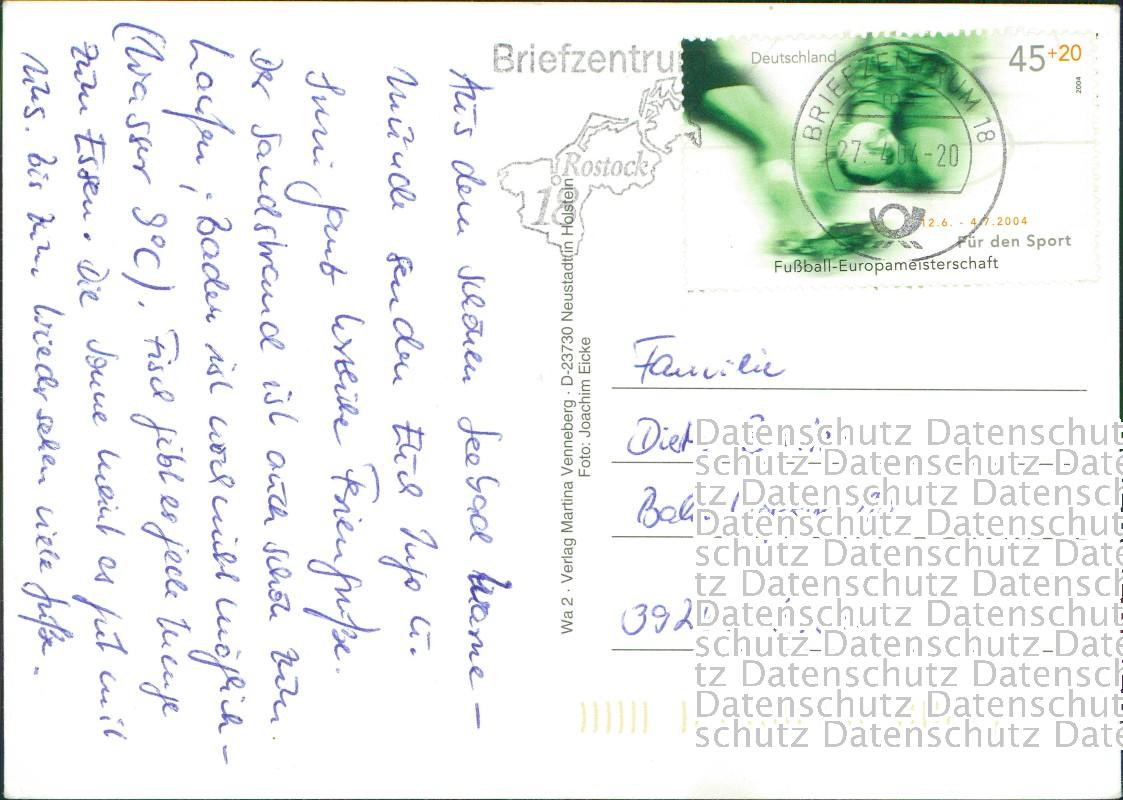 Aus dem schönen Seebad Warne-
münde senden Euch Ingo u.
Irmi ganz herzliche Feriengrüße.
Der Sandstrand ist auch schön zum
Laufen; Baden ist wohl nicht möglich -
(Wasser 8°C). Fisch gibt es jede Menge
zum Essen. Die Sonne meint es gut mit
uns. bis zum Wiedersehen viele Grüße.
Briefzentrum
Rostock
18
Deutschland
45+20
2004
BRIEFZENTRUM 18
27.-4.04-20
12.6. - 4.7.2004
Für den Sport
Fußball-Europameisterschaft
Wa 2 · Verlag Martina Venneberg · D-23730 Neustadt in Holstein
Foto: Joachim Eicke
Familie
Datenschutz Datenschut
schutz Datenschutz Date
tz Datenschutz Datensch
Datenschutz Datenschut
schutz Datenschutz Date
tz Datenschutz Datensch
Datenschutz Datenschut
schutz Datenschutz Date
tz Datenschutz Datensch
Datenschutz Datenschut
schutz Datenschutz Date